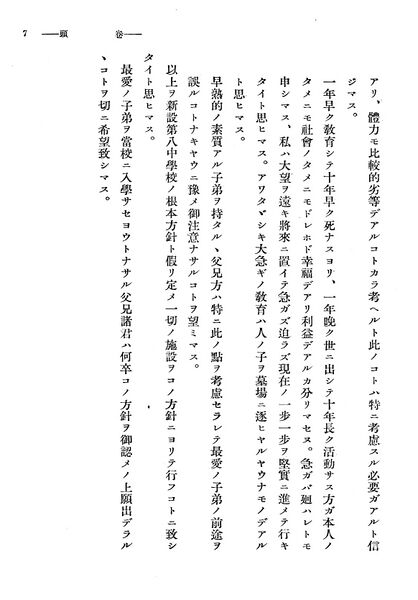 7 ――頭　　卷――
アリ、體力モ比較的劣等デアルコトカラ考ヘルト此ノコトハ特ニ考慮スル必要ガアルト信
ジマス。
一年早ク敎育シテ十年早ク死ナスヨリ、一年晩ク世ニ出シテ十年長ク活動サス方ガ本人ノ
タメニモ社會ノタメニモドレホド幸福デアリ利益デアルカ分リマセヌ。急ガバ廻ハレトモ
申シマス、私ハ大望ヲ遠キ將來ニ置イテ急ガズ迫ラズ現在ノ一步一步ヲ堅實ニ進メテ行キ
タイト思ヒマス。アワタヾシキ大急ギノ敎育ハ人ノ子ヲ墓場ニ逐ヒヤルヤウナモノデアル
ト思ヒマス。
早熟的ノ素質アル子弟ヲ持タルヽ父兄方ハ特ニ此ノ點ヲ考慮セラレテ最愛ノ子弟ノ前途ヲ
誤ルコトナキヤウニ豫メ御注意ナサルコトヲ望ミマス。
以上ヲ新設第八中學校ノ根本方針ト假リ定メ一切ノ施設ヲコノ方針ニヨリテ行フコトニ致シ
タイト思ヒマス。
最愛ノ子弟ヲ當校ニ入學サセヨウトナサル父兄諸君ハ何卒コノ方針ヲ御認メノ上願出デラル
ヽコトヲ切ニ希望致シマス。